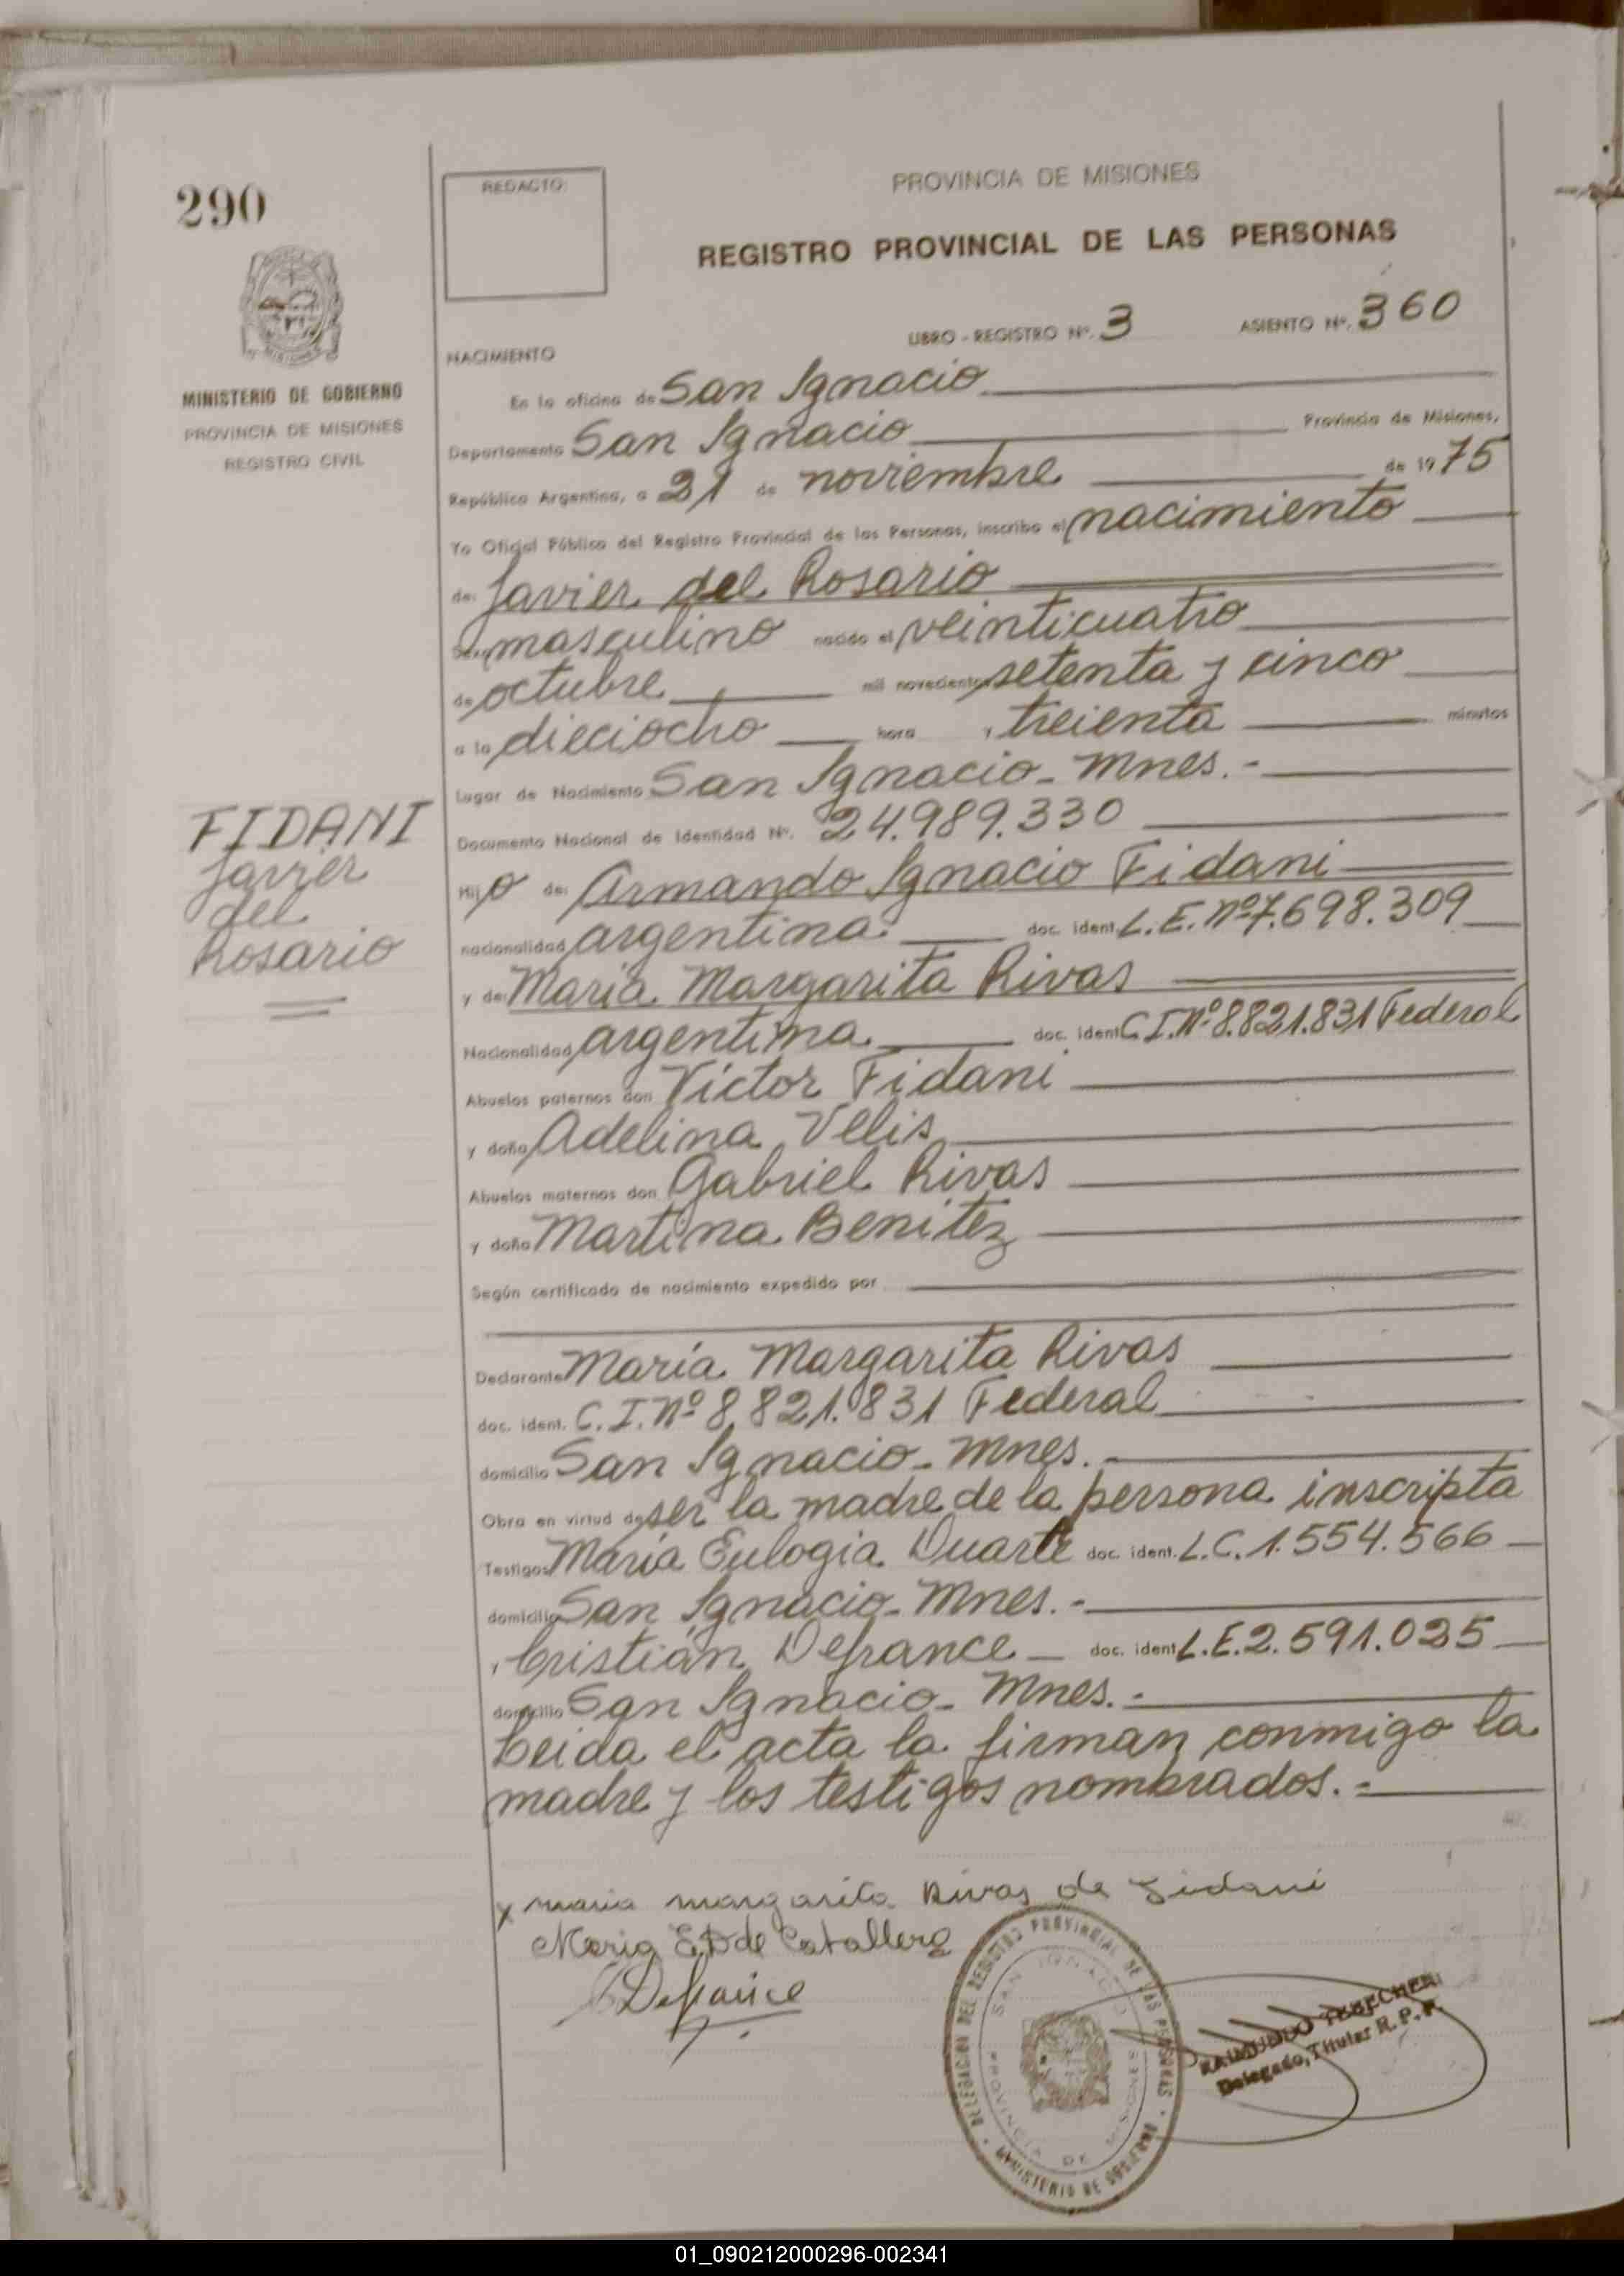 290
REDACTO:
PROVINCIA DE MISIONES
REGISTRO PROVINCIAL DE LAS PERSONAS
LIBRO - REGISTRO Nº. 3 ASIENTO Nº. 360
MINISTERIO DE GOBIERNO
PROVINCIA DE MISIONES
REGISTRO CIVIL
NACIMIENTO
En la oficina de San Ignacio
Departamento San Ignacio Provincia de Misiones,
República Argentina, a 21 de noviembre de 1975
Yo Oficial Público del Registro Provincial de las Personas, inscribo el nacimiento
de: Javier del Rosario
Sexo masculino nacido el veinticuatro
de octubre mil novecientos setenta y cinco
a la dieciocho hora y treienta minutos
Lugar de Nacimiento San Ignacio - Mnes. -
Documento Nacional de Identidad Nº. 24.989.330
FIDANI
Javier
del
Rosario
Hijo de: Armando Ignacio Fidani
nacionalidad argentina. doc. ident. L.E. Nº 7.698.309
y de: María Margarita Rivas
Nacionalidad argentina. doc. ident. C.I. Nº 8.821.831 Federal
Abuelos paternos don Víctor Fidani
y doña Adelina Velis
Abuelos maternos don Gabriel Rivas
y doña Martina Benitez
Según certificado de nacimiento expedido por
Declarante María Margarita Rivas
doc. ident. C.I. Nº 8.821.831 Federal
domicilio San Ignacio - Mnes. -
Obra en virtud de ser la madre de la persona inscripta
Testigos María Eulogia Duarte doc. ident. L.C. 1.554.566
domicilio San Ignacio - Mnes. -
y Cristián Defrance doc. ident. L.E. 2.591.025
domicilio San Ignacio - Mnes. -
Leida el acta la firman conmigo la
madre y los testigos nombrados. =
x maria margarita Rivas de Fidani
Maria E.D de Caballero
Defrance
DELEGACION DEL REGISTRO PROVINCIAL DE LAS PERSONAS
SAN IGNACIO
PROVINCIA DE MISIONES
MINISTERIO DE GOBIERNO
RAIMUNDO
Delegado, Titular R. P. P.
01_090212000296-002341